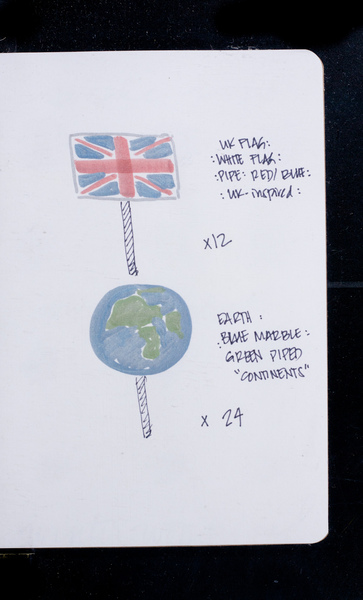 UK FLAG:
: WHITE FLAG:
: PIPE: RED/BLUE:
: UK-inspired:
x12
EARTH:
: BLUE MARBLE:
GREEN PIPED
"CONTINENTS"
x 24